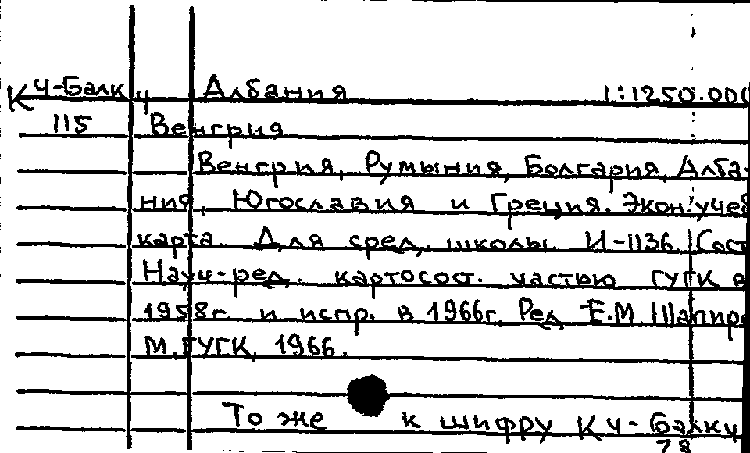 К4-Балк 4 Албания 1:1250.000
115 Венгрия
Венгрия, Румыния, Болгария, Алба-
ния, Югославия и Греция. Экон. учеб
карта. Для сред. школы И-1136. (Сост
Науч-ред. картосост. частью ГУГК в
1958г. и испр. в 1966г. Ред. Е.М Шапиро
М. ГУГК, 1966.
То же к шифру К4-Балк 4
78